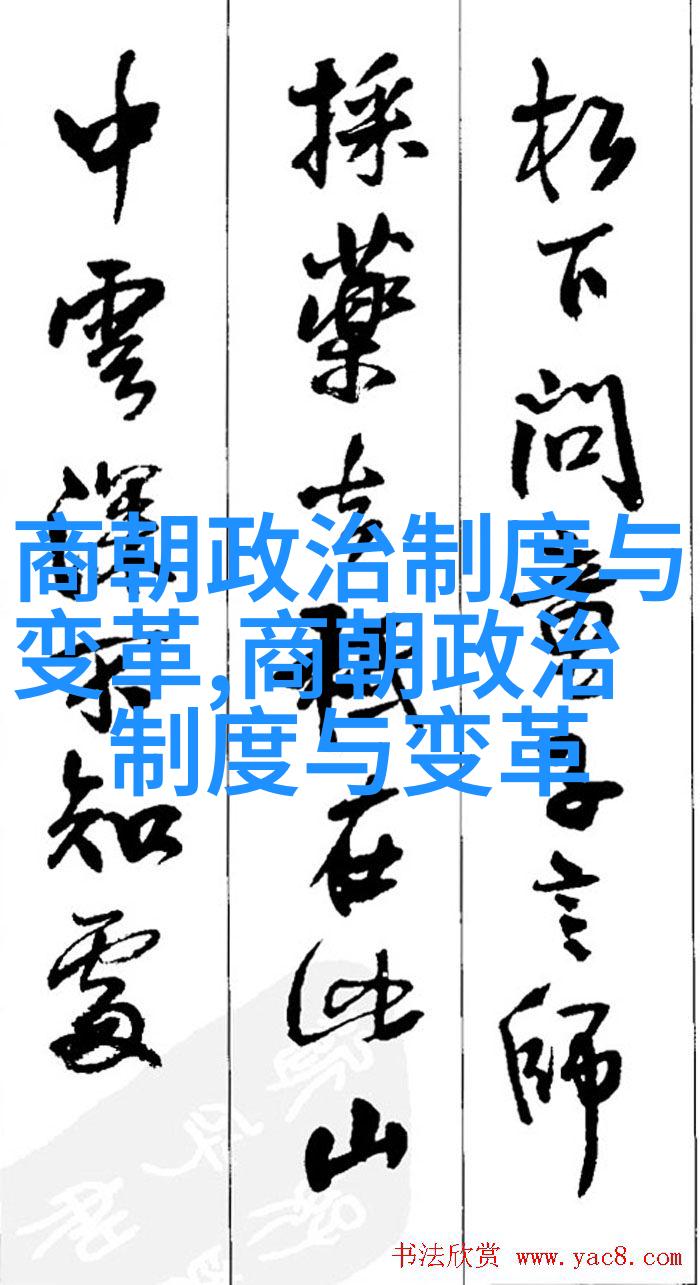 松下问童子言師
採藥去秖在此山
中雲深不知處
商朝政治制度与
变革,商朝政治
制度与变革
书法欣赏 www.yac8.com